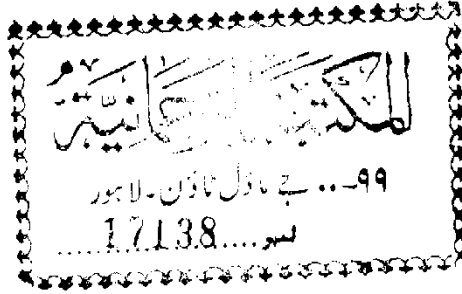 المکتبۃ الرحمانیۃ
۹۹... جے ماڈل ٹاؤن۔ لاہور
نمبر....17138.....